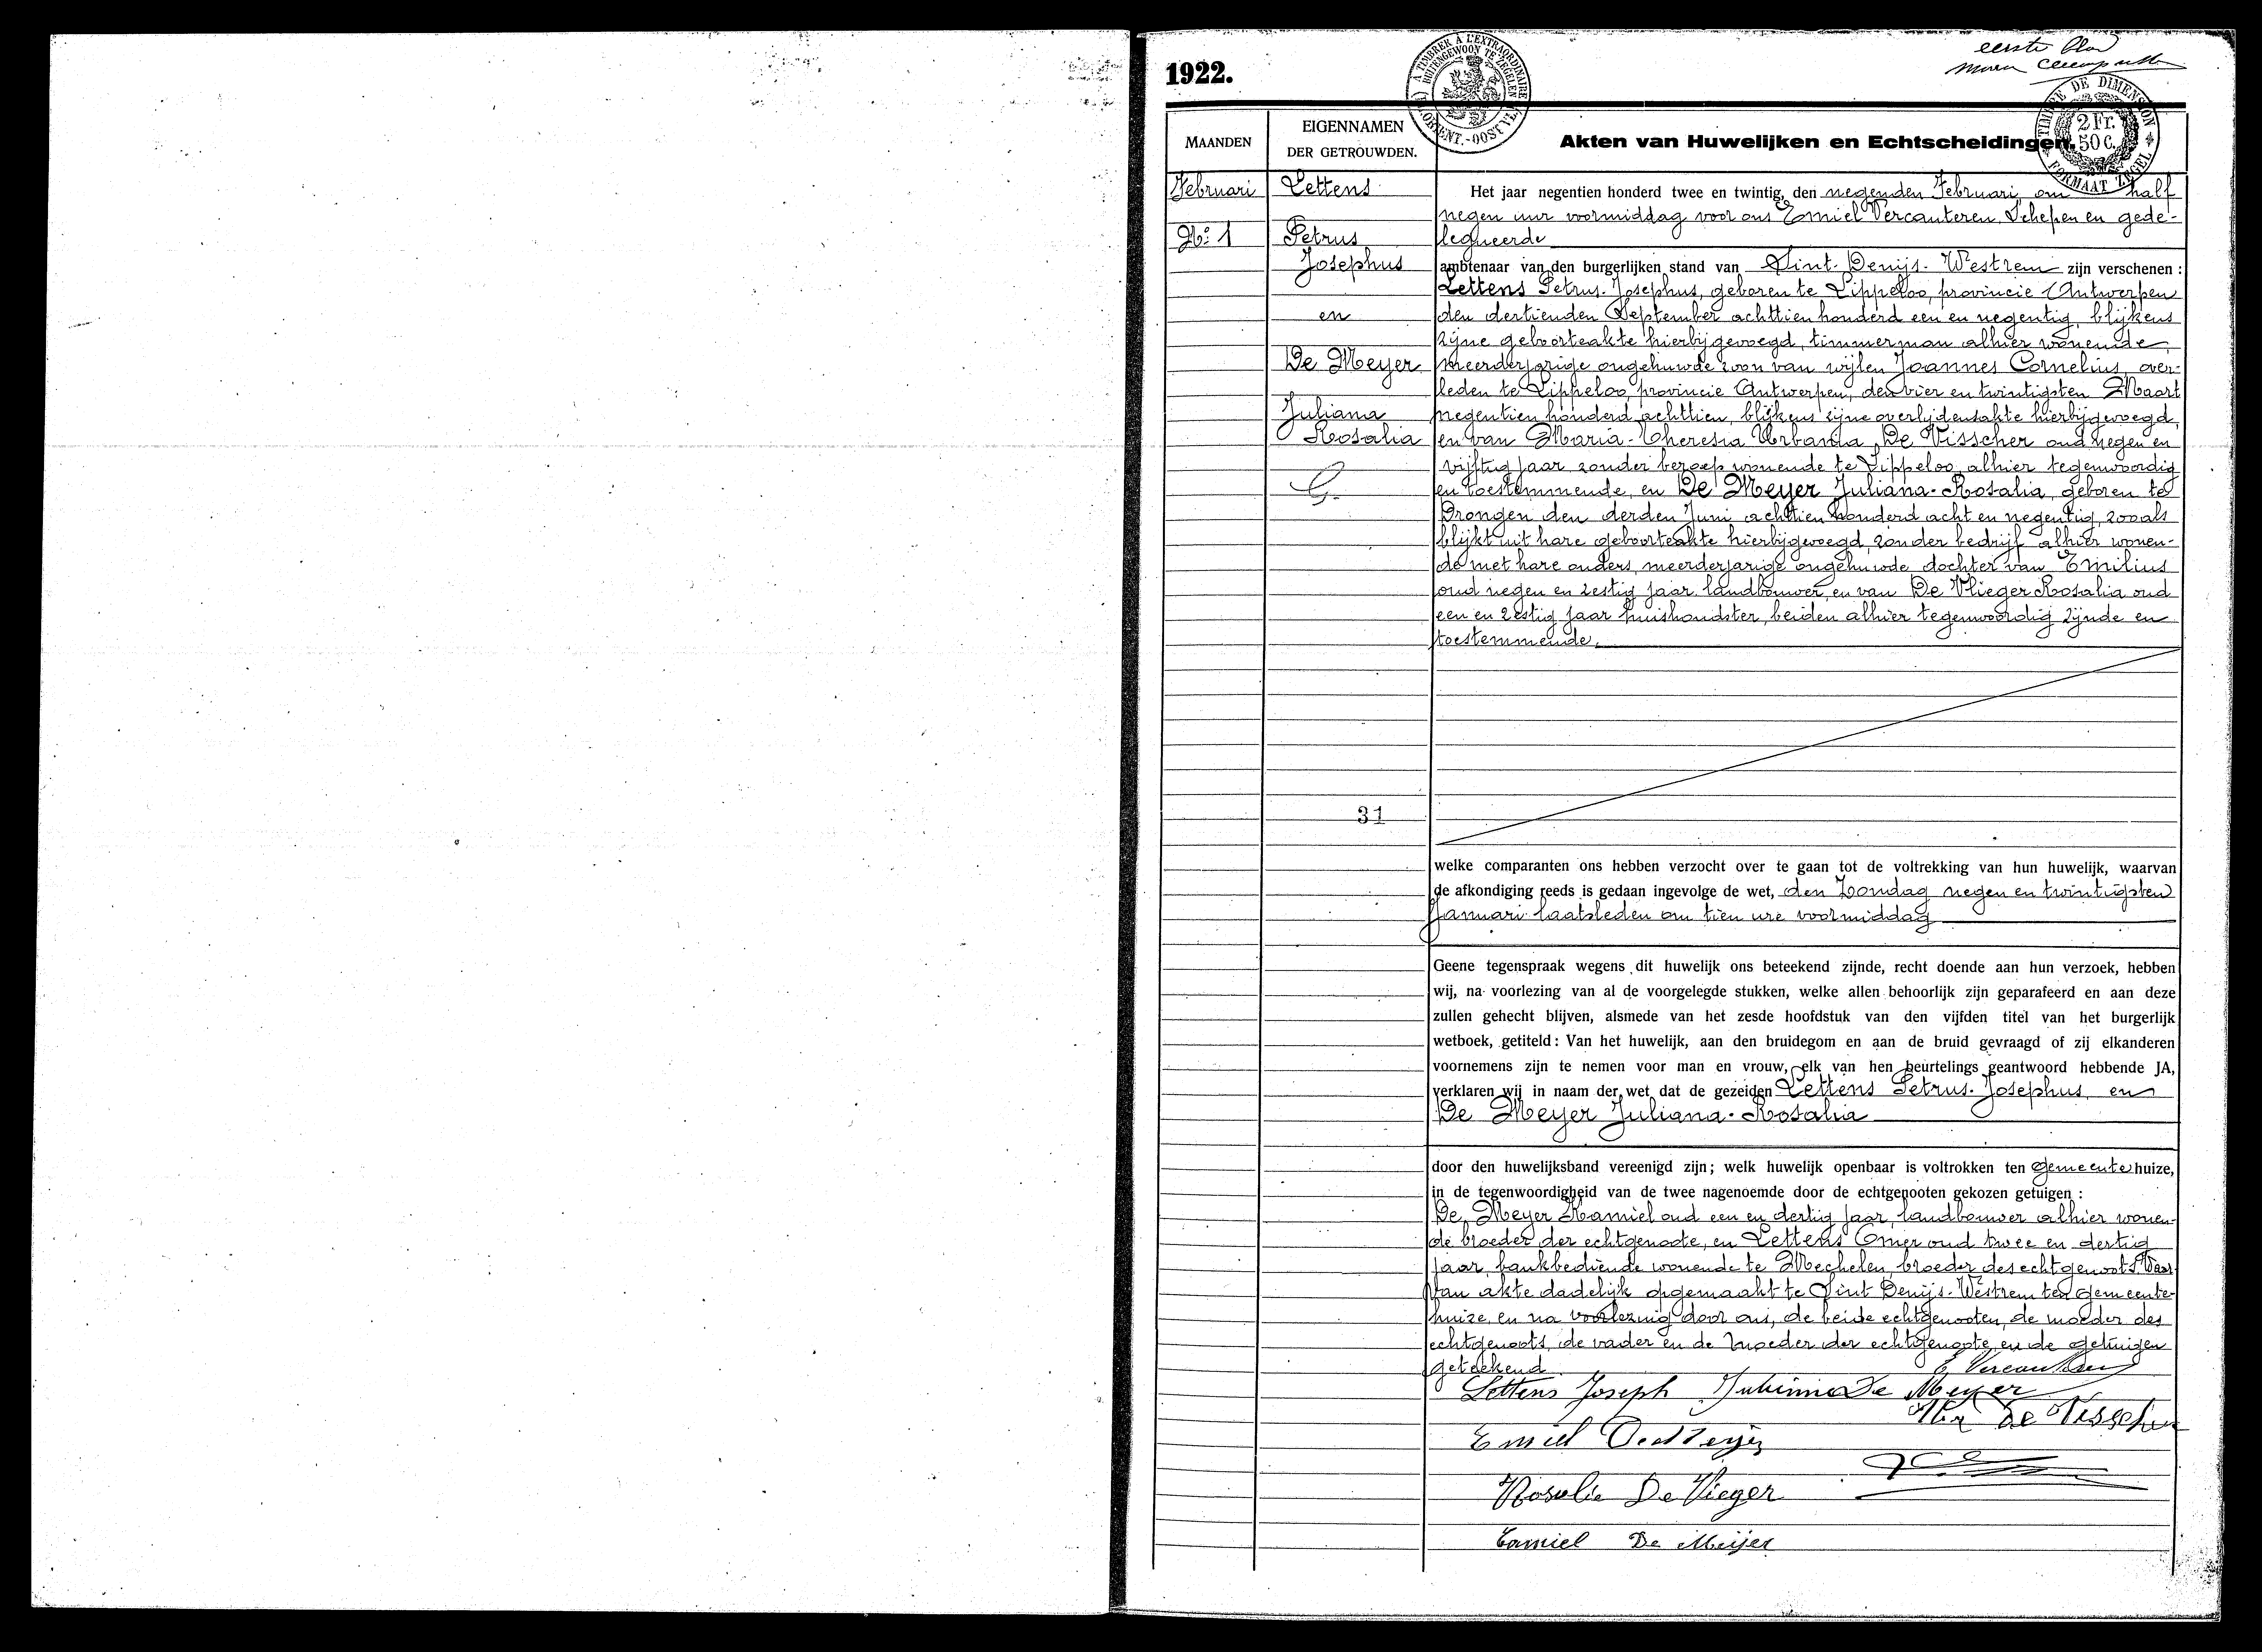 1922.
eerste blad
A TIMBRER A L'EXTRAORDINAIRE
BUITENGEWOON TE ZEGELEN
TIMBRE DE DIMENSION
2 Fr.
50 c.
FORMAAT ZEGEL
MAANDEN
EIGENNAMEN
DER GETROUWDEN.
Akten van Huwelijken en Echtscheidingen.
Februari
No: 1
Lettens
Petrus
Josephus
en
De Meyer
Juliana
Rosalia
31
Het jaar negentien honderd twee en twintig, den negenden Februari, om half
negen uur voormiddag voor ons Emiel Vercauteren Schepen en gede-
legueerde
ambtenaar van den burgerlijken stand van Sint-Denijs-Westrem zijn verschenen :
Lettens Petrus-Josephus, geboren te Lippeloo, provincie Antwerpen
den dertienden September achttien honderd een en negentig, blijkens
zijne geboorteakte hierbijgevoegd, timmerman alhier wonende,
meerderjarige ongehuwde zoon van wijlen Joannes Cornelius, over-
leden te Lippeloo, provincie Antwerpen, den vier en twintigsten Maart
negentien honderd achttien, blijkens zijne overlijdensakte hierbijgevoegd,
en van Maria-Theresia Urbania De Visscher oud negen en
vijftig jaar zonder beroep wonende te Lippeloo, alhier tegenwoordig
en toestemmende, en De Meyer Juliana-Rosalia, geboren te
Drongen den derden Juni achttien honderd acht en negentig, zooals
blijkt uit hare geboorteakte hierbijgevoegd, zonder bedrijf alhier wonen-
de met hare ouders, meerderjarige ongehuwde dochter van Emilius
oud negen en zestig jaar landbouwer, en van De Vlieger Rosalia oud
een en zestig jaar huishoudster, beiden alhier tegenwoordig zijnde en
toestemmende.
welke comparanten ons hebben verzocht over te gaan tot de voltrekking van hun huwelijk, waarvan
de afkondiging reeds is gedaan ingevolge de wet, den Zondag negen en twintigsten
Januari laatsleden om tien ure voormiddag
Geene tegenspraak wegens dit huwelijk ons beteekend zijnde, recht doende aan hun verzoek, hebben
wij, na voorlezing van al de voorgelegde stukken, welke allen behoorlijk zijn geparafeerd en aan deze
zullen gehecht blijven, alsmede van het zesde hoofdstuk van den vijfden titel van het burgerlijk
wetboek, getiteld : Van het huwelijk, aan den bruidegom en aan de bruid gevraagd of zij elkanderen
voornemens zijn te nemen voor man en vrouw, elk van hen beurtelings geantwoord hebbende JA,
verklaren wij in naam der wet dat de gezeiden Lettens Petrus-Josephus en
De Meyer Juliana-Rosalia
door den huwelijksband vereenigd zijn ; welk huwelijk openbaar is voltrokken ten gemeentehuize,
in de tegenwoordigheid van de twee nagenoemde door de echtgenooten gekozen getuigen :
De Meyer Kamiel oud een en dertig jaar, landbouwer alhier wonen-
de broeder der echtgenoote, en Lettens Omer oud twee en dertig
jaar, bankbediende wonende te Mechelen, broeder des echtgenoots. Waar
van akte dadelijk opgemaakt te Sint Denijs-Westrem ten gemeente-
huize, en na voorlezing door ons, de beide echtgenooten, de moeder des
echtgenoots, de vader en de moeder der echtgenoote, en de getuigen
geteekend
E. Vercauteren
Lettens Joseph Julienne De Meyer
De Visscher
Emiel De Meyer
Rosalie De Vlieger
Camiel De Meijer